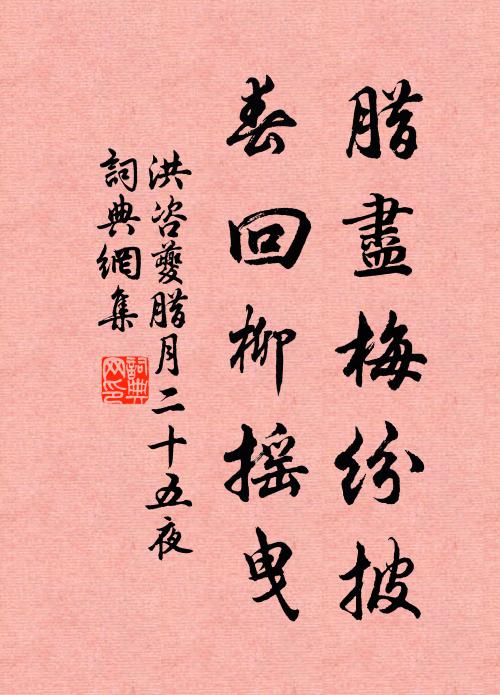 腊盡梅紛披
春回柳摇曳
洪咨夔腊月二十五夜
詞典網集
詞典
网印